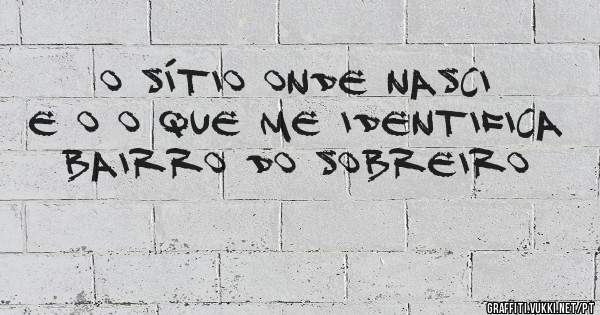 O SÍTIO ONDE NASCI
E O O QUE ME IDENTIFICA
BAIRRO DO SOBREIRO
GRAFFITI.VUKKI.NET/PT